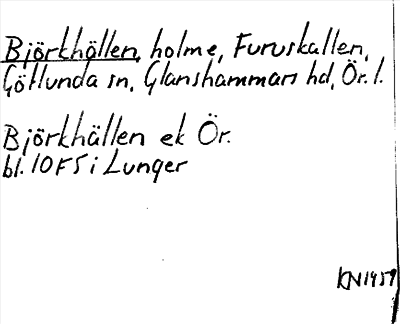 Björkhällen, holme, Furuskallen,
Götlunda sn, Glanshammars hd, Ör. l.
Björkhällen ek Ör.
bl. 10F5 i Lunger
KN1957